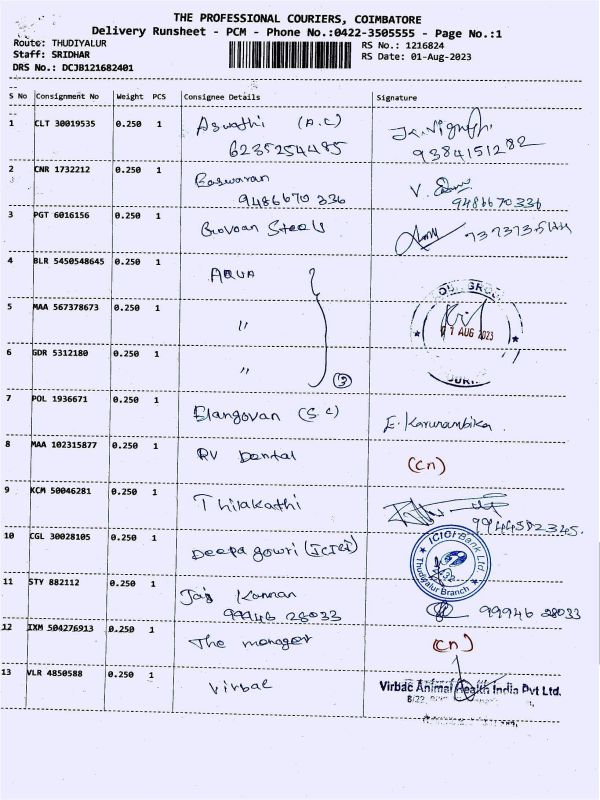 THE PROFESSIONAL COURIERS, COIMBATORE
Delivery Runsheet - PCM - Phone No.:0422-3505555 - Page No.:1
Route: THUDIYALUR
Staff: SRIDHAR
DRS No.: DCJB121682401
RS No.: 1216824
RS Date: 01-Aug-2023
S No Consignment No Weight PCS Consignee Details Signature
1 CLT 30019535 0.250 1 Aswathi (A.C)
6235254485 9384151282
2 CNR 1732212 0.250 1 Easwaran V.
9486670336 9486670336
3 PGT 6016156 0.250 1 Steels
4 BLR 5450548645 0.250 1 AQUA
5 MAA 567378673 0.250 1 "
01 AUG 2023
6 GDR 5312180 0.250 1 " (3)
7 POL 1936671 0.250 1 Elangovan (S.C) E. Karunambika.
8 MAA 102315877 0.250 1 RV Dental (cn)
9 KCM 50046281 0.250 1 Thilakathi
9944582345.
10 CGL 30028105 0.250 1 Deepa gowri (ICICI) ICICI Bank Ltd.
Thudiyalur Branch
11 STY 882112 0.250 1 Jai Kannan
99946 28033 99946 28033
12 IXM 504276913 0.250 1 The manager (cn)
13 VLR 4850588 0.250 1 Virbac Virbac Animal Health India Pvt Ltd.